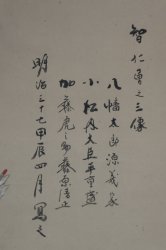 智仁勇之三像
八幡太郎源義家
小松内大臣平重盛
加藤虎之助藤原清正
明治三十七甲辰四月寫之